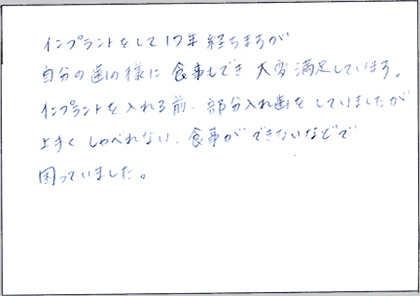 インプラントをして17年経ちますが
自分の歯の様に食事もでき大変満足しています。
インプラントを入れる前、部分入れ歯をしていましたが
上手くしゃべれない、食事ができないなどで
困っていました。